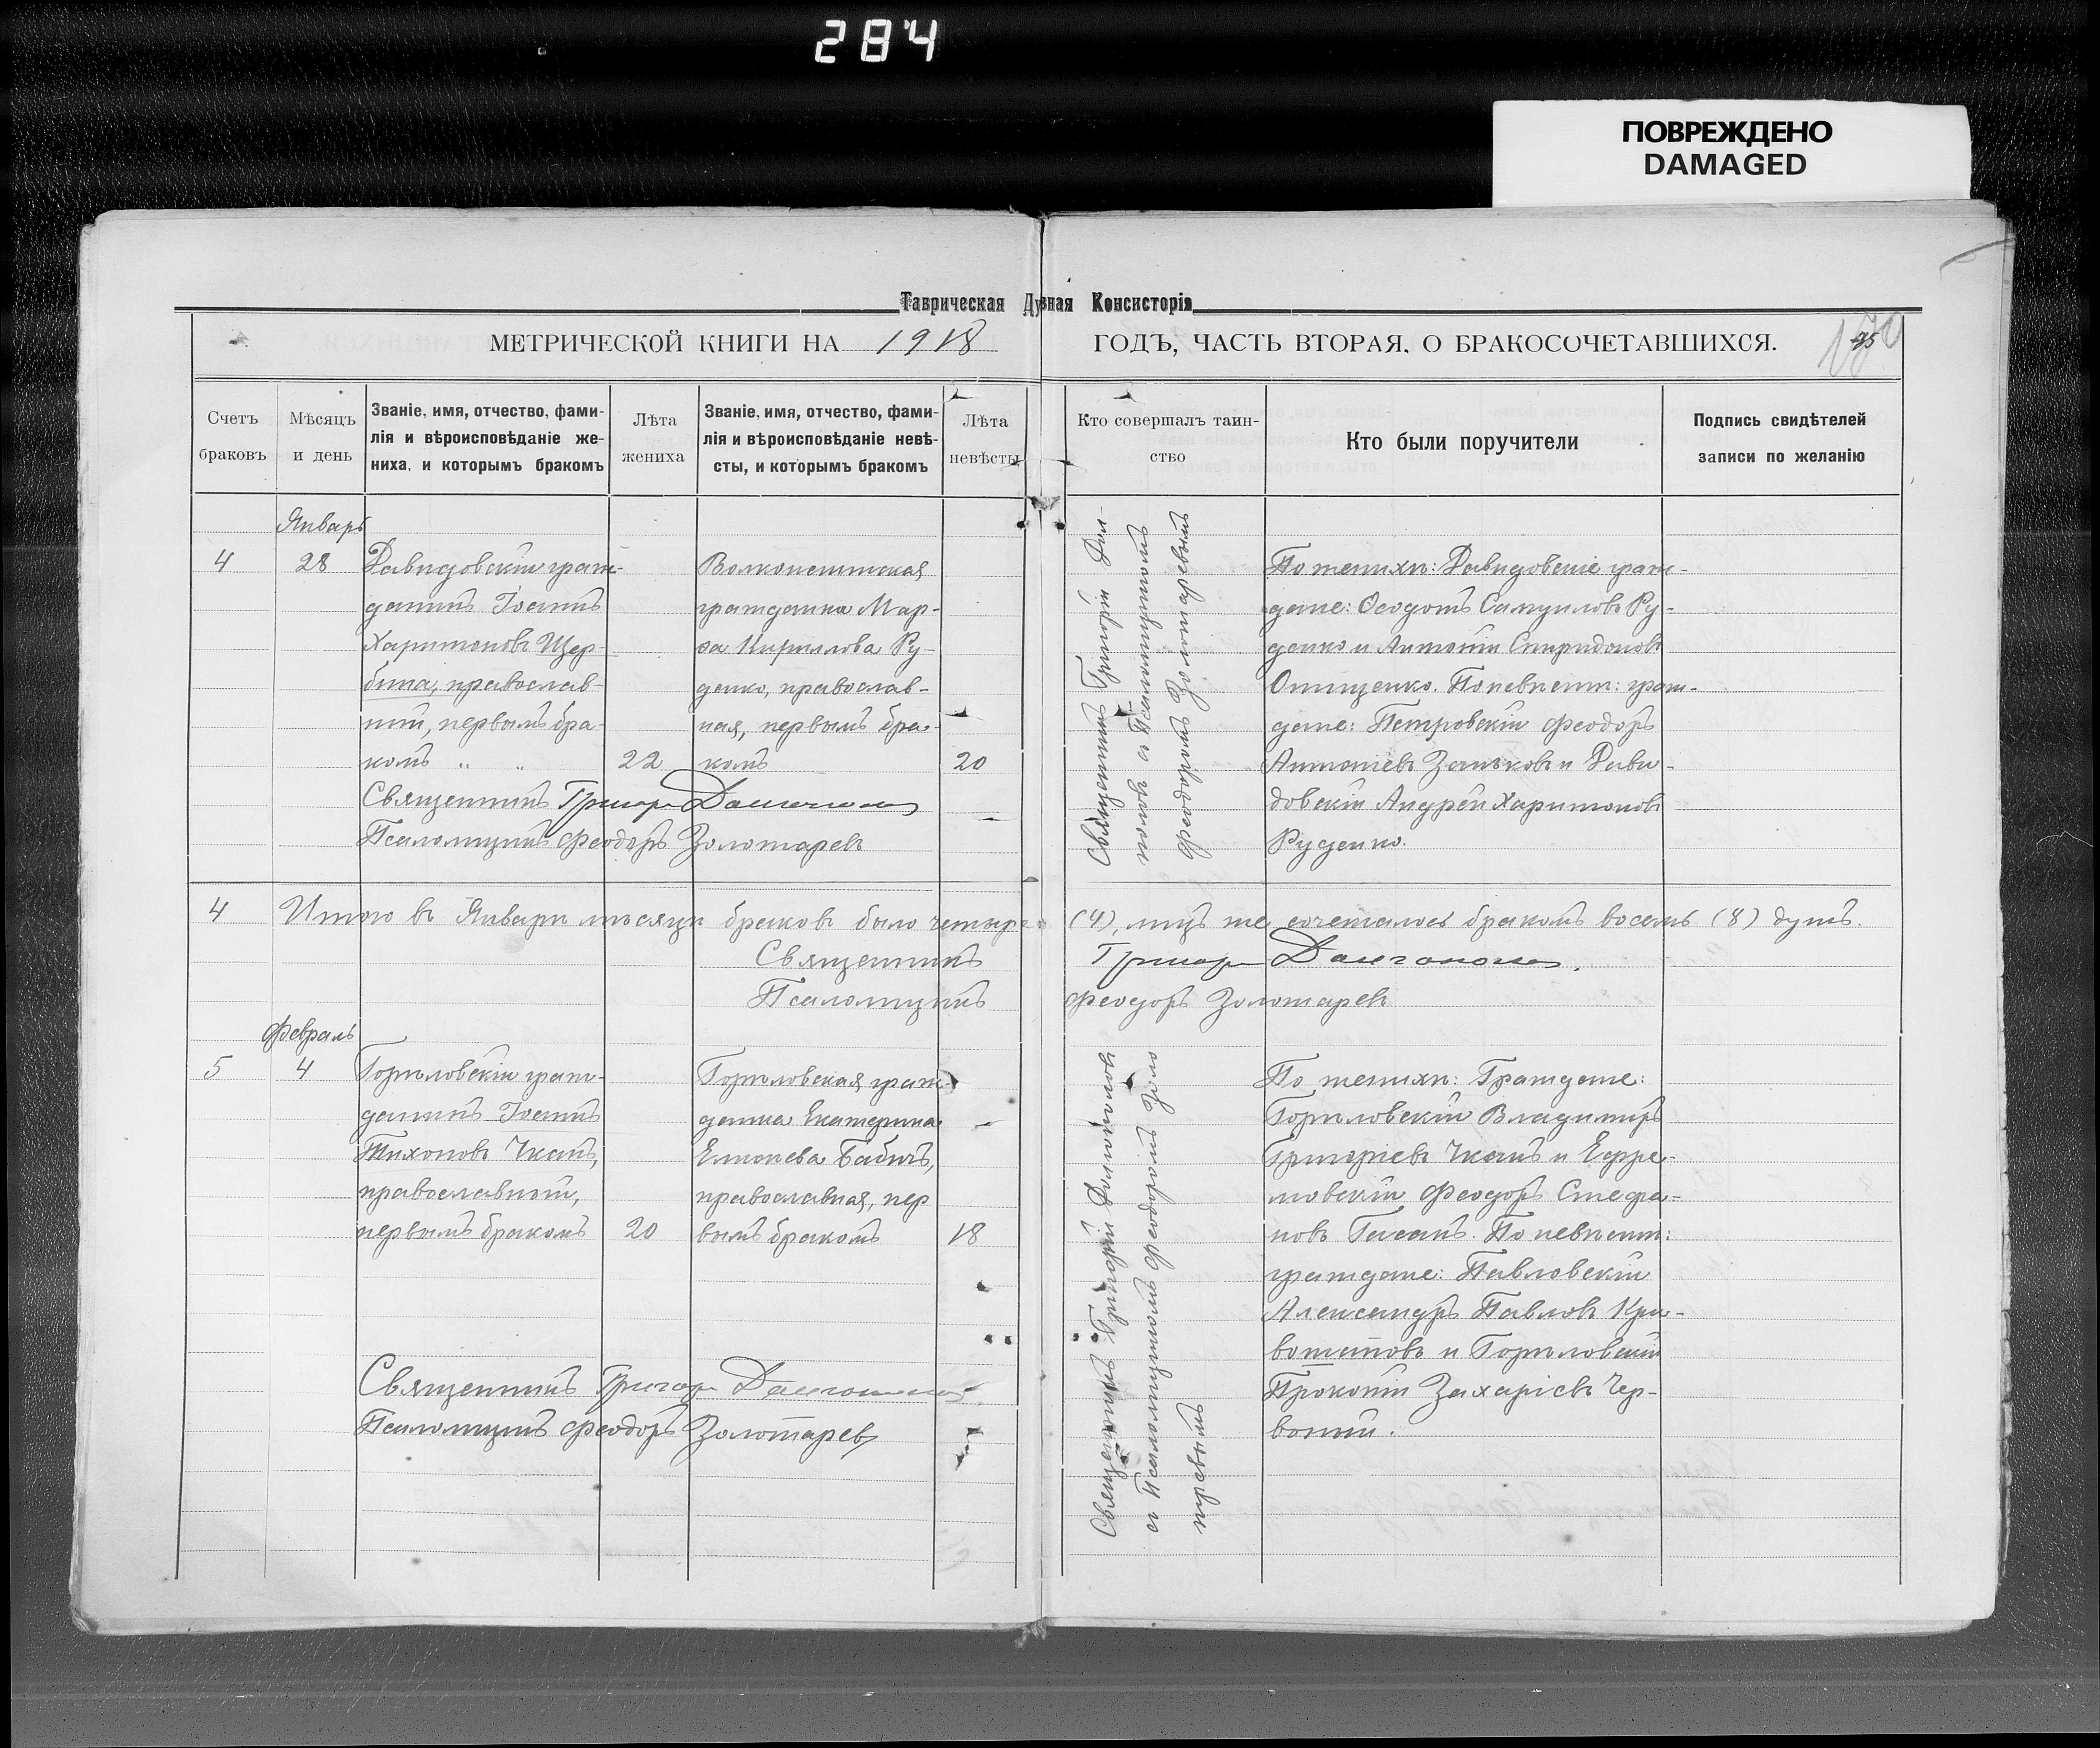 284
ПОВРЕЖДЕНО
DAMAGED
Таврическая Духовная Консисторія
МЕТРИЧЕСКОЙ КНИГИ НА 1918
ГОДЪ, ЧАСТЬ ВТОРАЯ, О БРАКОСОЧЕТАВШИХСЯ.
Счетъ
браковъ
Мѣсяцъ
и день
Званіе, имя, отчество, фами-
лія и вѣроисповѣданіе же-
ниха, и которымъ бракомъ
Лѣта
жениха
Званіе, имя, отчество, фами-
лія и вѣроисповѣданіе невѣ-
сты, и которымъ бракомъ
Лѣта
невѣсты
Кто совершалъ таин-
ство
Кто были поручители
Подпись свидѣтелей
записи по желанію
Январь
4
28
Давидовскій граж-
данинъ Іоаннъ
Харитоновъ Щер-
бина, православ-
ный, первымъ бра-
комъ „ „
22
гражданка Мар-
ѳа Кириллова Ру-
денко, православ-
ная, первымъ бра-
комъ
20
Священникъ Григорій
Псаломщикъ Феодоръ Золотаревъ
Священникъ Григорій
Псаломщикомъ
Феодоромъ Золотаревымъ
По женихѣ: Давидовскіе граж-
дане: Ѳеодотъ Самуиловъ Ру-
денко и Антоній Спиридоновъ
Онищенко. По невѣстѣ: граж-
дане: Петровскій Феодоръ
Антоніевъ и Дави-
довскій Андрей Харитоновъ
Руденко.
4
Итого въ Январѣ мѣсяцѣ браковъ было четыре (4), лицъ же сочеталось бракомъ восемь (8) душъ.
Священникъ Григорій
Псаломщикъ Феодоръ Золотаревъ
Февраль
5
4
Горѣловскій граж-
данинъ Іоаннъ
Тихоновъ Чканъ,
православный,
первымъ бракомъ
20
Горѣловская граж-
данка Екатерина
Бабичъ,
православная, пер
вымъ бракомъ
18
Священникъ Григорій
Псаломщикъ Феодоръ Золотаревъ
Священникъ Григорій
съ Псаломщикомъ Феодоромъ Золо
таревымъ
По женихѣ: Граждане:
Горѣловскій Владимиръ
Григоріевъ Чканъ и Ефре-
мовскій Феодоръ Стефа-
новъ Гасанъ. По невѣстѣ:
граждане: Павловскій
Александръ Павловъ Кри-
и Горѣловскій
Прокопій Захаріевъ Чер-
воный.